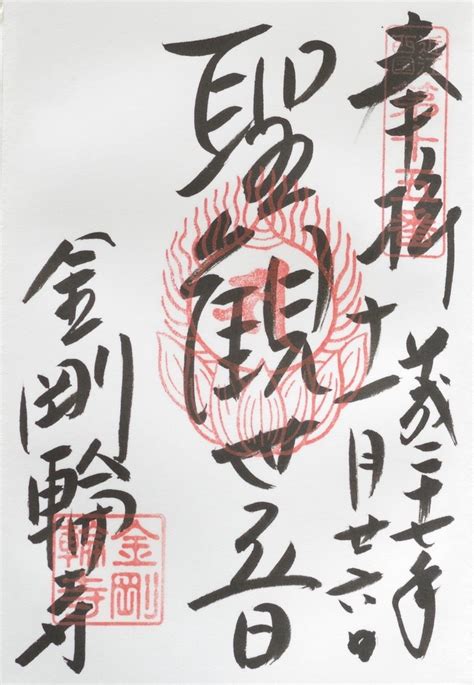 奉拝
近江西国第十五番
二十七年
十一月廿六日
聖観世音
金剛輪寺
金剛輪寺